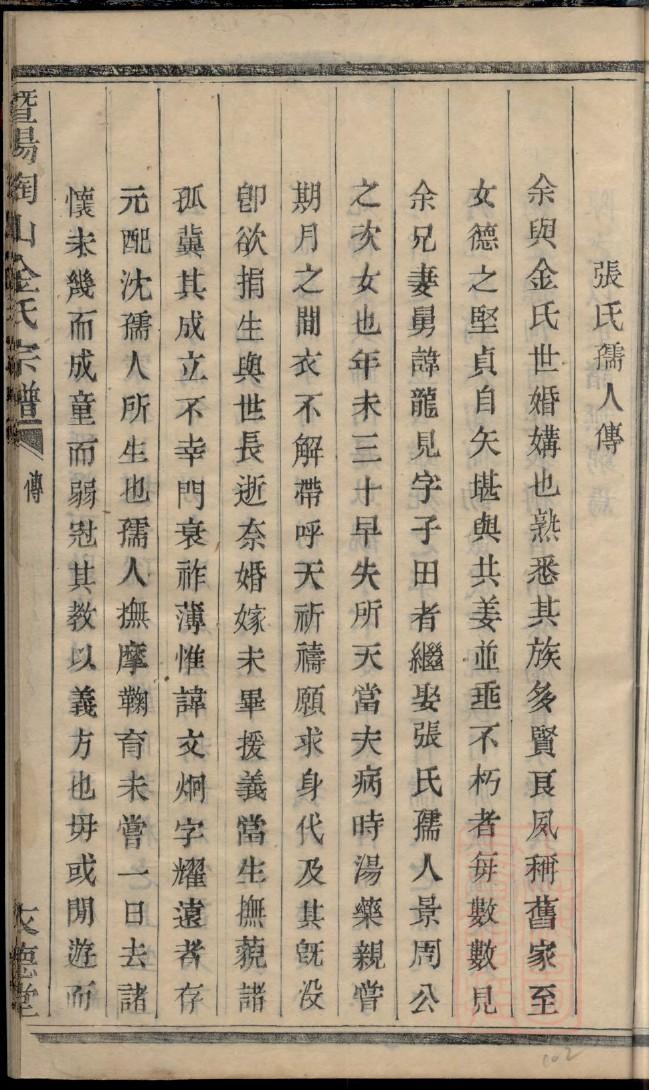 張氏孺人傳
余與金氏世婚媾也熟悉其族多賢良夙稱舊家至
女德之堅貞自矢堪與共姜並垂不朽者每數數見
余兄妻舅諱龍見字子田者繼娶張氏孺人景周公
之次女也年未三十早失所天當夫病時湯藥親嘗
期月之間衣不解帶呼天祈禱願求身代及其旣沒
卽欲捐生與世長逝奈婚嫁未畢援義當生撫藐諸
孤冀其成立不幸門衰祚薄惟諱文炯字耀遠者存
元配沈孺人所生也孺人撫摩鞠育未嘗一日去諸
懷未幾而成童而弱冠其教以義方也毋或閒遊而
暨陽陶山金氏宗譜
傳
文德堂
102